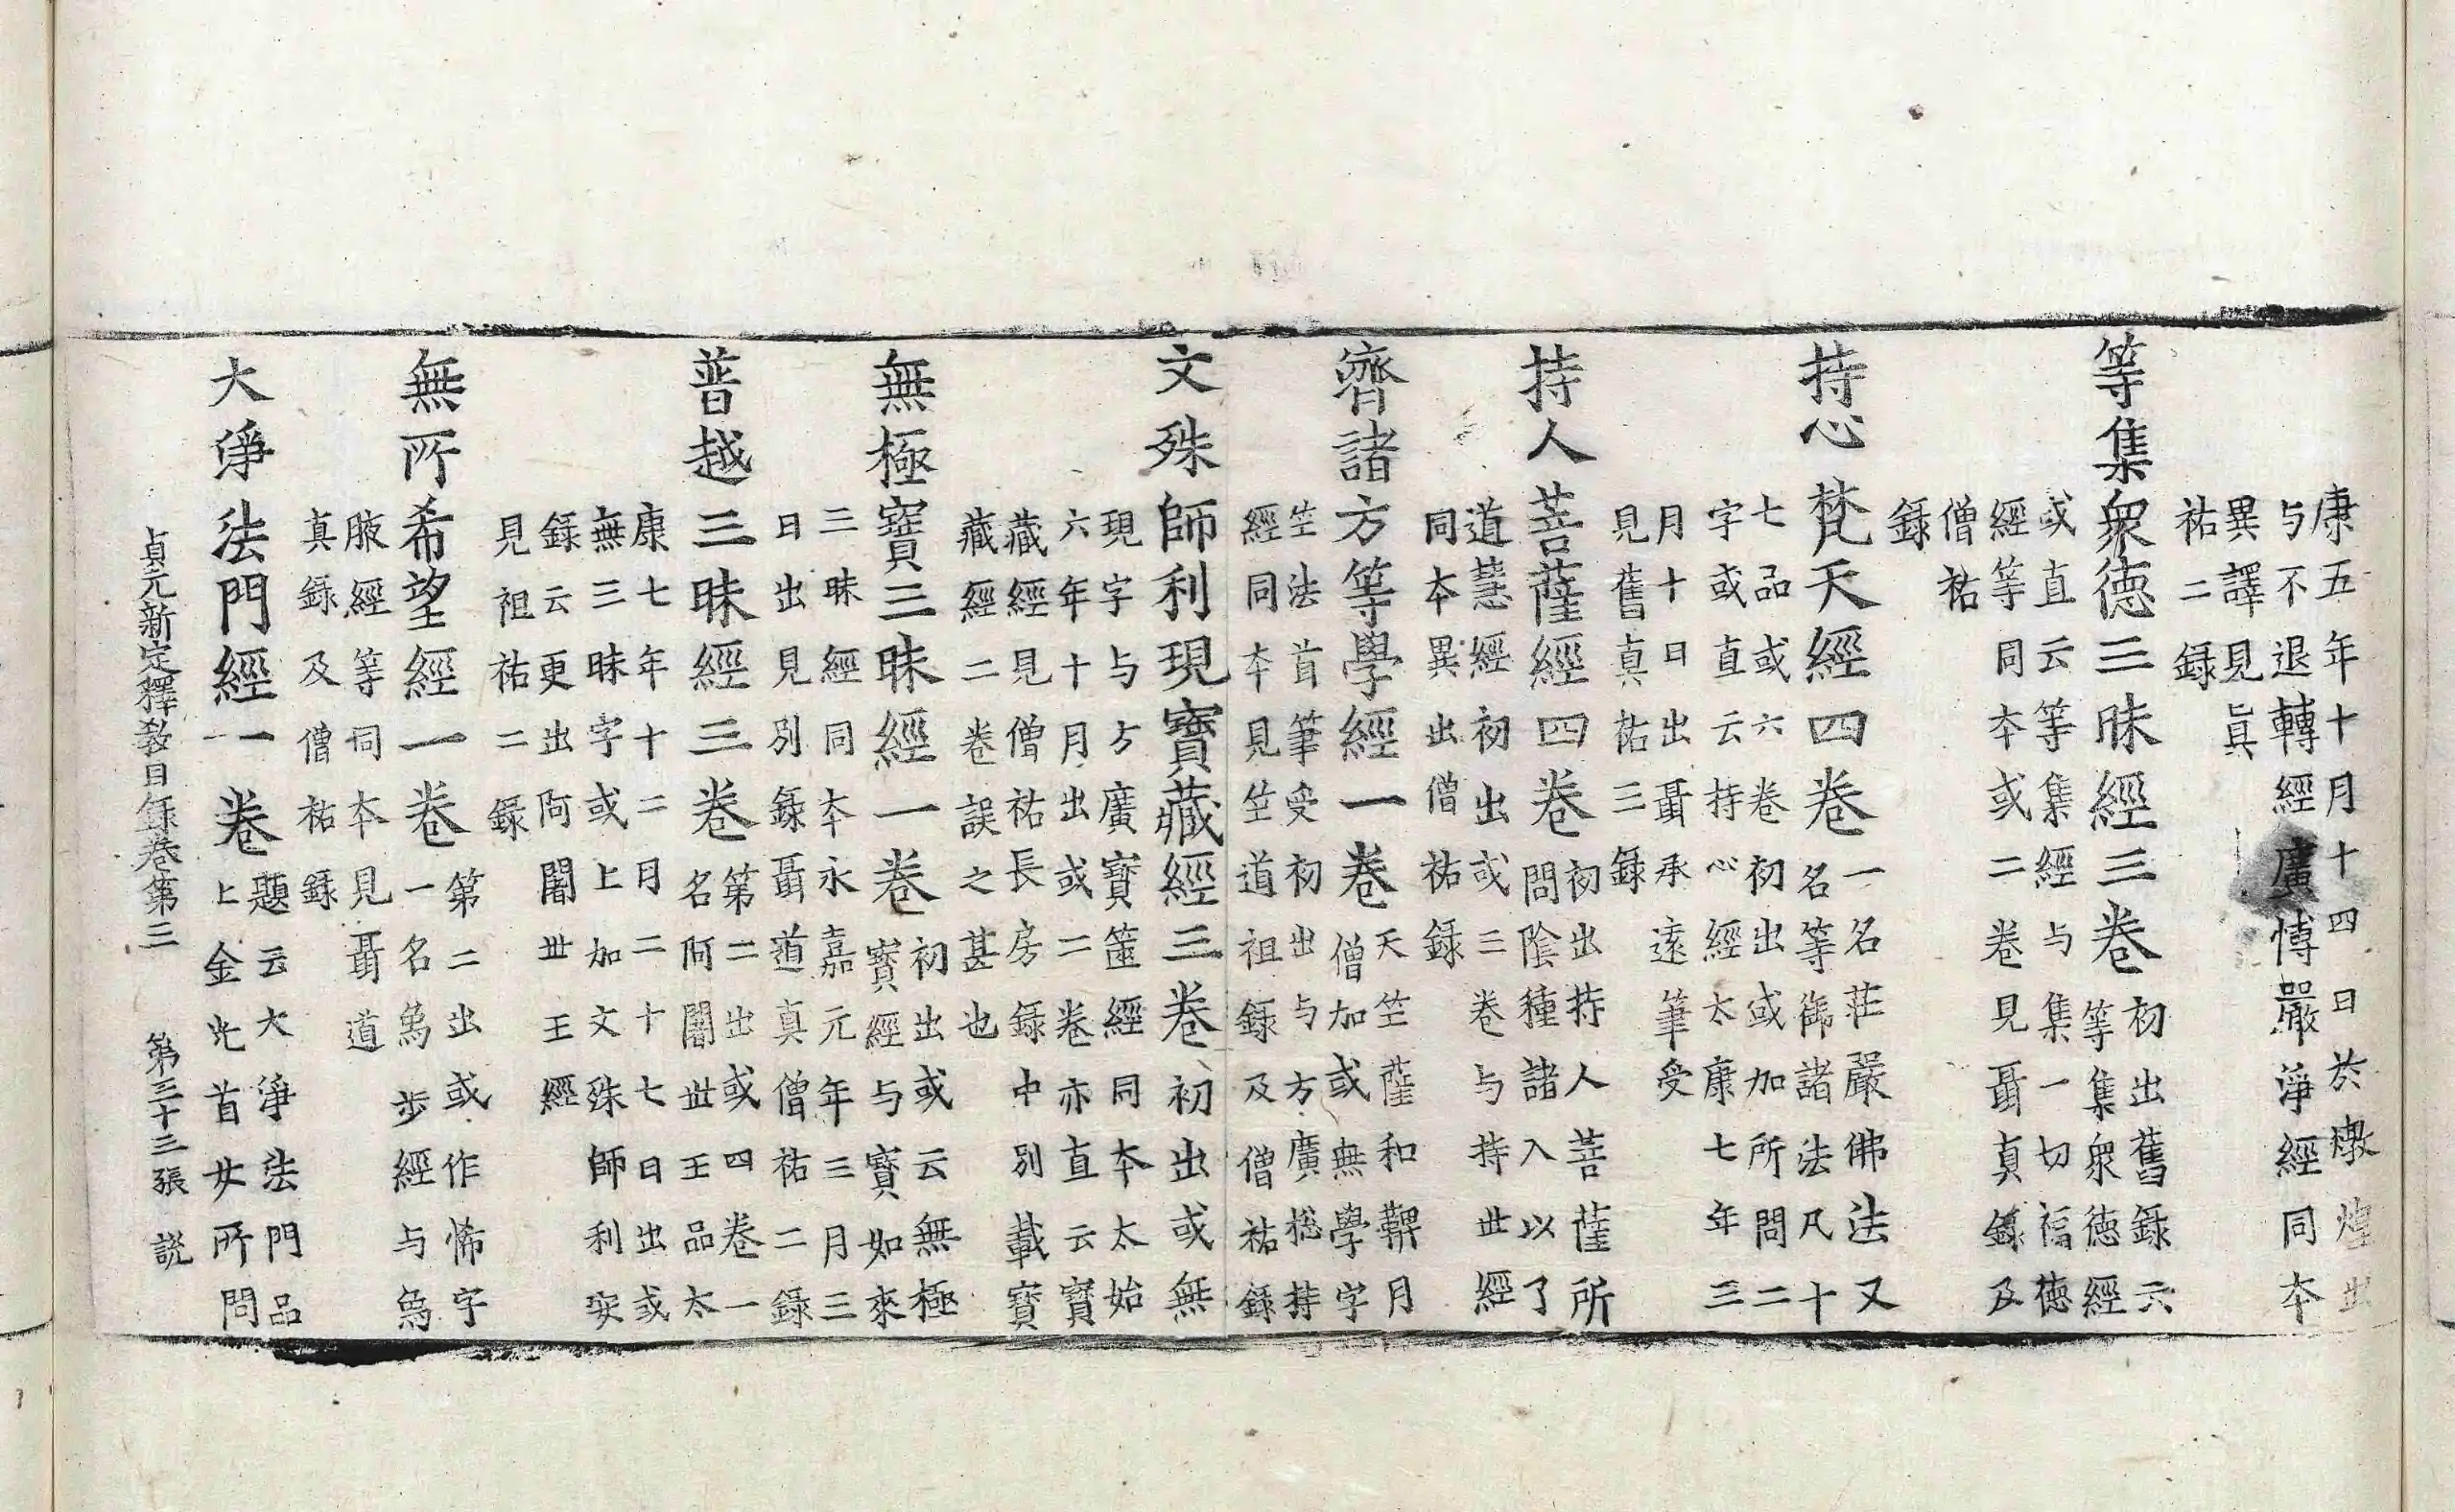 康五年十月十四日於燉煌出
与不退轉經廣愽嚴淨經同本
異譯見眞
祐二録
等集衆德三昧經三卷
初出舊録云
等集衆德經
或直云等集經与集一切福德
經等同本或二卷見聶真録及
僧祐
録
持心梵天經四卷
一名莊嚴佛法又
名等御諸法凡十
七品或六卷初出或加所問二
字或直云持心經太康七年三
月十日出聶承遠筆受
見舊真祐三録
持人菩薩經四卷
初出持人菩薩所
問陰種諸入以了
道慧經初出或三卷与持世經
同本異出僧祐録
濟諸方等學經一卷
天竺薩和鞞月
僧加或無學字
竺法首筆受初出与方廣捴持
經同本見竺道祖録及僧祐録
文殊師利現寶藏經三卷初出或無
現字与方廣寶篋經同本太始
六年十月出或二卷亦直云寶
藏經見僧祐長房録中別載寶
藏經二卷誤之甚也
無極寶三昧經一卷
初出或云無極
寶經与寶如來
三昧經同本永嘉元年三月三
日出見別録聶道真僧祐二録
普越三昧經三卷
第二出或四卷一
名阿闍世王品太
康七年十二月二十七日出或
無三昧字或上加文殊師利安
録云更出阿闍世王經
見祖祐二録
無所希望經一卷
第二出或作悕字
一名爲步經与爲
腋經等同本見聶道
真録及僧祐録
大淨法門經一卷
題云大淨法門品
上金光首女所問
貞元新定釋教目録卷第三 第三十三張 説